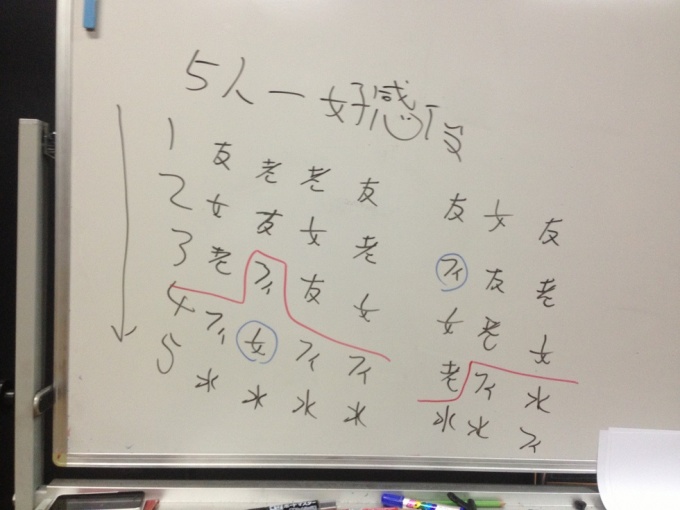 5人一好感役
1 友 老 老 友 友 女 友
2 女 友 女 老 フィ 友 老
3 老 フィ 友 女 女 老 女
4 フィ 女 フィ フィ 老 フィ 水
5 水 水 水 水 水 水 フィ